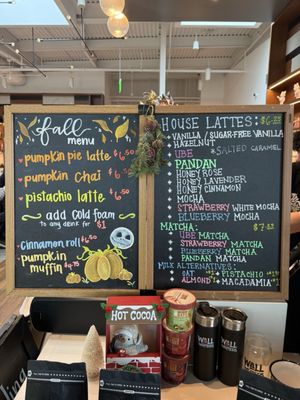 fall
menu
pumpkin pie latte $6.50
pumpkin chai $6.50
pistachio latte $6.50
add cold foam
to any drink for $1
cinnamon roll $6.50
pumpkin
muffin
HOUSE LATTES:
VANILLA / SUGAR-FREE VANILLA
HAZELNUT
*SALTED CARAMEL
UBE
PANDAN
HONEY ROSE
HONEY LAVENDER
HONEY CINNAMON
MOCHA
STRAWBERRY WHITE MOCHA
BLUEBERRY MOCHA
MATCHA:
UBE MATCHA
STRAWBERRY MATCHA
BLUEBERRY MATCHA
PANDAN MATCHA
MILK ALTERNATIVES:
OAT
PISTACHIO
ALMOND
MACADAMIA
HOT COCOA